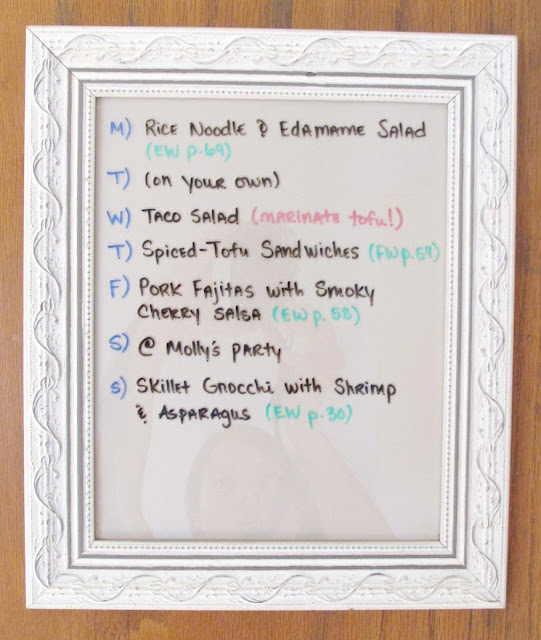 M) Rice Noodle & Edamame Salad
(EW p.69)
T) (on your own)
W) Taco Salad (marinate tofu!)
T) Spiced-Tofu Sandwiches (EW p.54)
F) Pork Fajitas with Smoky
Cherry Salsa (EW p.58)
S) @ Molly's party
S) Skillet Gnocchi with Shrimp
& Asparagus (EW p.30)